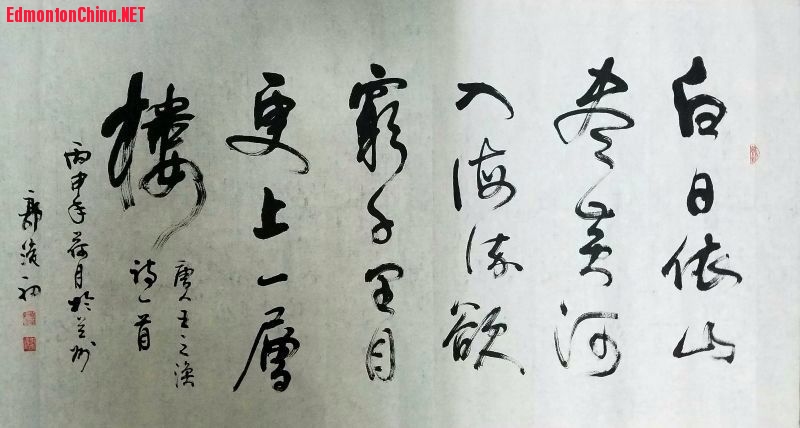 EdmontonChina.NET
白日依山
盡黃河
入海流欲
窮千里目
更上一層
樓
唐王之渙
詩一首
丙申年荷月於兰州
郭